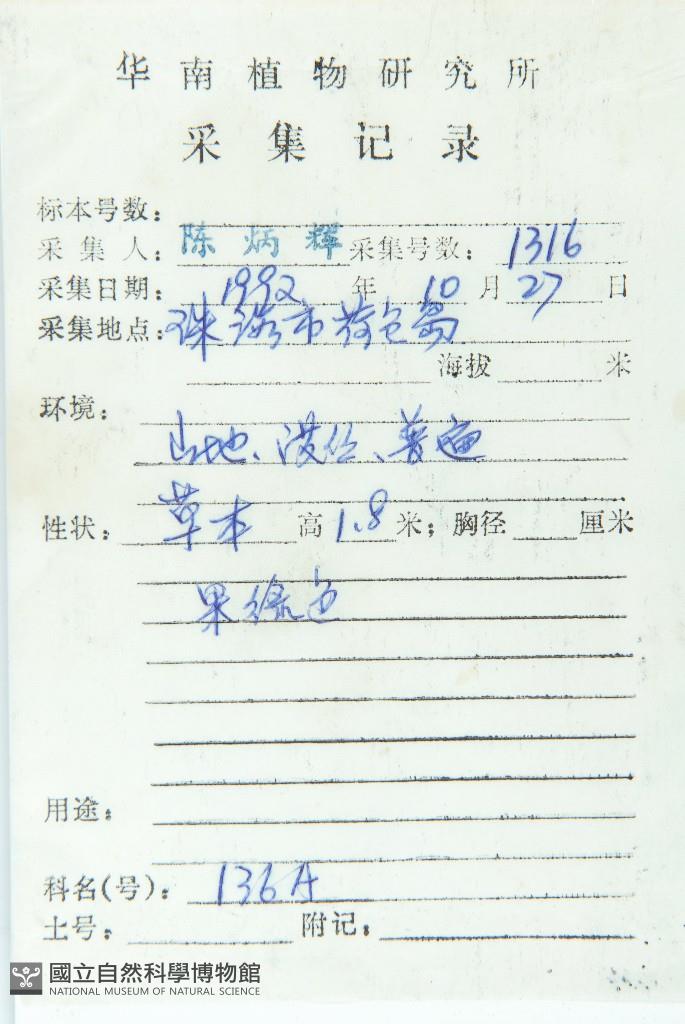 华南植物研究所
采集记录
标本号数：
采集人：陈炳辉 采集号数：1316
采集日期：1992年10月27日
采集地点：珠海市荷包岛
海拔 米
环境：
山地、 、普遍
性状：草本 高1.8米；胸径 厘米
果绿色
用途：
科名(号)：136A
土号： 附记：
國立自然科學博物館
NATIONAL MUSEUM OF NATURAL SCIENCE